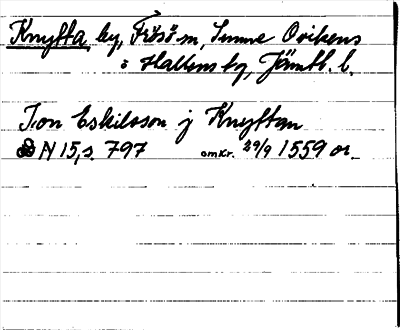 Knytta by, Frösö sn, Sunne Ovikens
o Hallens tg, Jämtl. l.
Jon Eskilsson j Knyttom
N 15, s. 797 omkr. 29/9 1559 or.